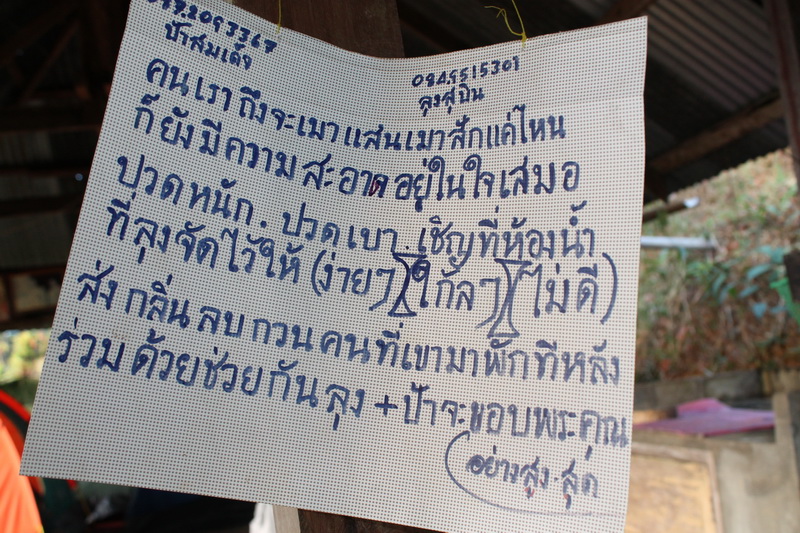 ป้าสมเด็จ
0845515301
ลุงสุบิน
คนเราถึงจะเมาแสนเมาสักแค่ไหน
ก็ยังมีความสะอาดอยู่ในใจเสมอ
ปวดหนัก. ปวดเบา. เชิญที่ห้องน้ำ
ที่ลุงจัดไว้ให้ (ง่ายๆ) (ใกล้ๆ) (ไม่ดี)
ส่งกลิ่นลบกวนคนที่เขามาพักทีหลัง
ร่วมด้วยช่วยกันลุง + ป้าจะขอบพระคุณ
อย่างสูง.สุด